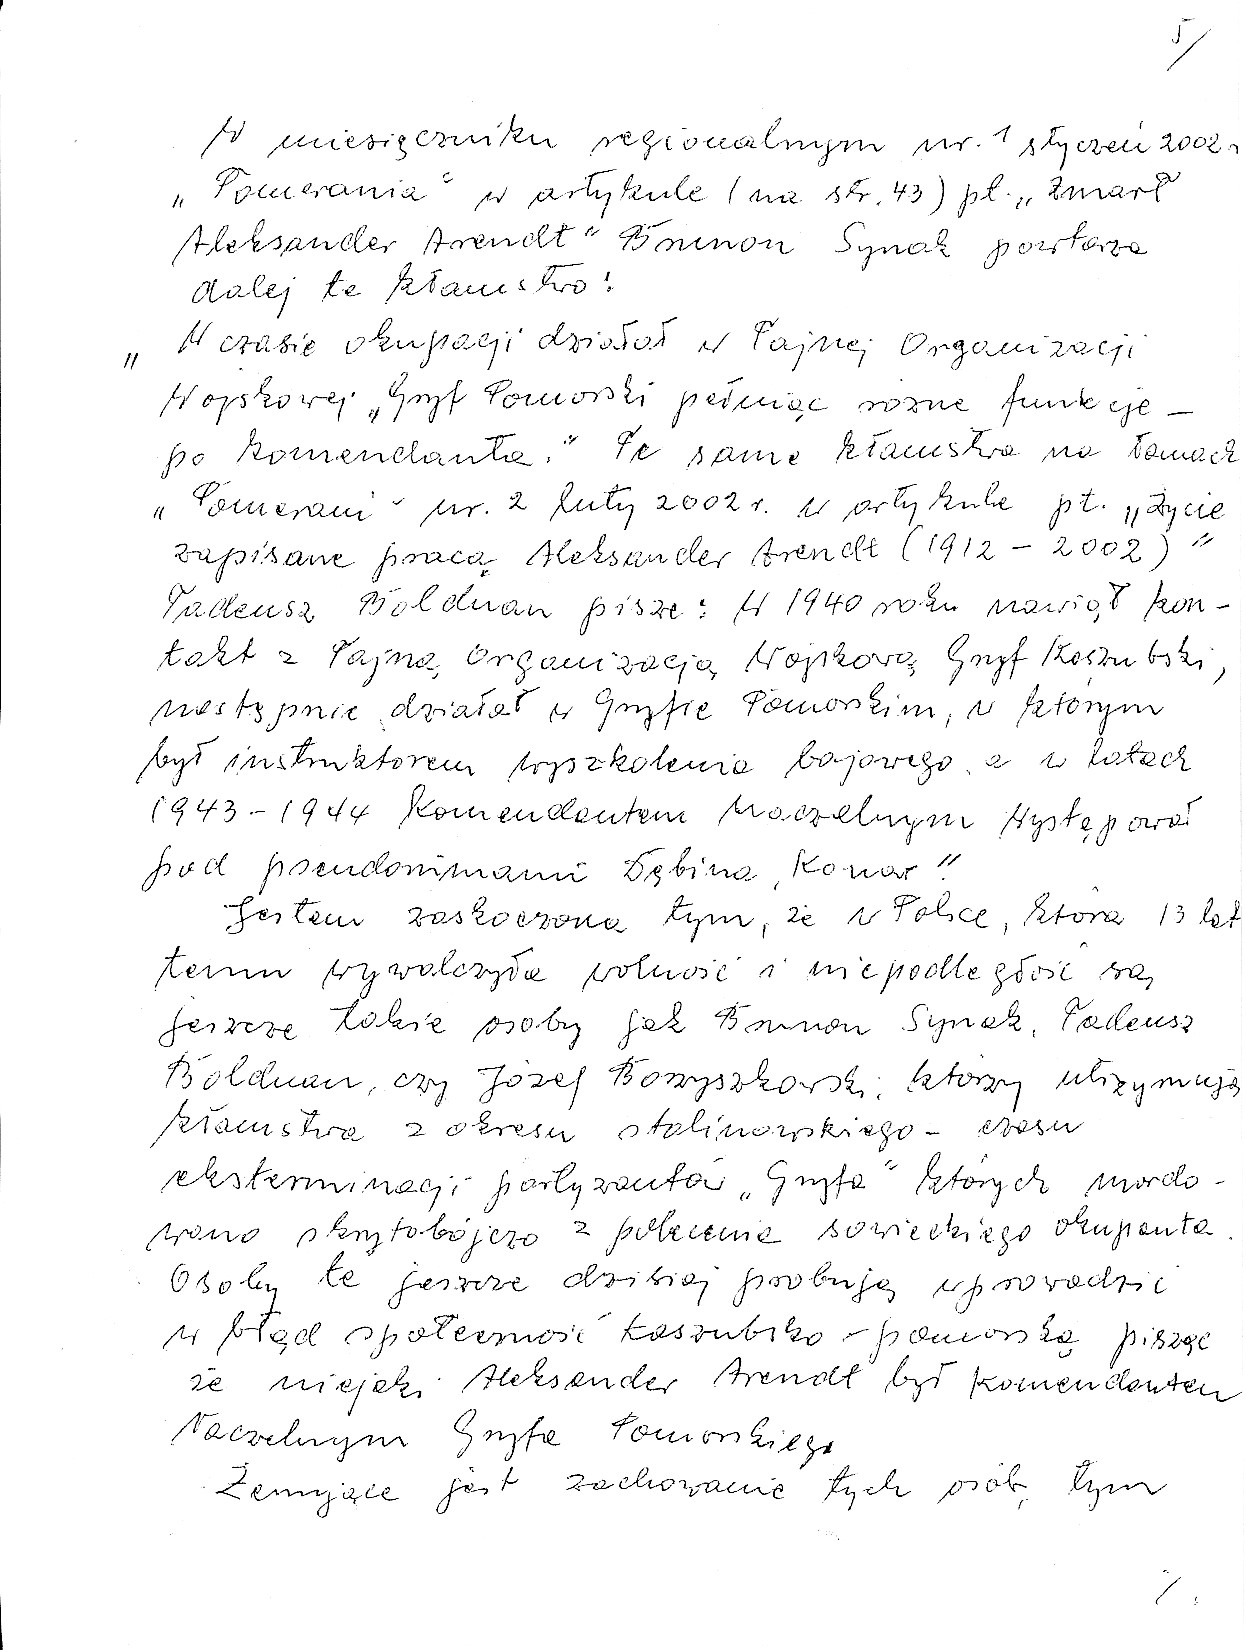 5/
W miesięczniku regionalnym nr. 1 styczeń 2002 r
„Pomerania" w artykule (na str. 43) pt. „Zmarł
Aleksander Arendt" Brunon Synak powtarza
dalej te kłamstwo:
„W czasie okupacji działał w Tajnej Organizacji
Wojskowej „Gryf Pomorski pełniąc rożne funkcje –
po komendanta." Te same kłamstwa na łamach
„Pomerani" nr. 2 luty 2002 r. w artykule pt. „Życie
zapisane pracą Aleksander Arendt (1912 – 2002)"
Tadeusz Bolduan pisze: W 1940 roku nawiął kon-
takt z Tajną Organizacją Wojskową Gryf Kaszubski,
następnie działał w Gryfie Pomorskim, w którym
był instruktorem wyszkolenia bojowego a w latach
1943 – 1944 Komendantem Naczelnym Występował
pod pseudonimami Dębina, Konar"
Jestem zaskoczona tym, że w Polsce, która 13 lat
temu wywalczyła wolność i niepodległość są
jeszcze takie osoby jak Brunon Synak, Tadeusz
Bolduan, czy Józef Borzyszkowski, którzy utrzymują
kłamstwa z okresu stalinowskiego – czasu
eksterminacji partyzantów „Gryfa" których mordo-
wano skrytobójczo z polecenia sowieckiego okupanta.
Osoby te jeszcze dzisiaj probują wprowadzić
w błąd społeczność kaszubsko – pomorską pisząc
że niejaki Aleksander Arendt był komendantem
Naczelnym Gryfa Pomorskiego
Żenujące jest zachowanie tych osób, tym